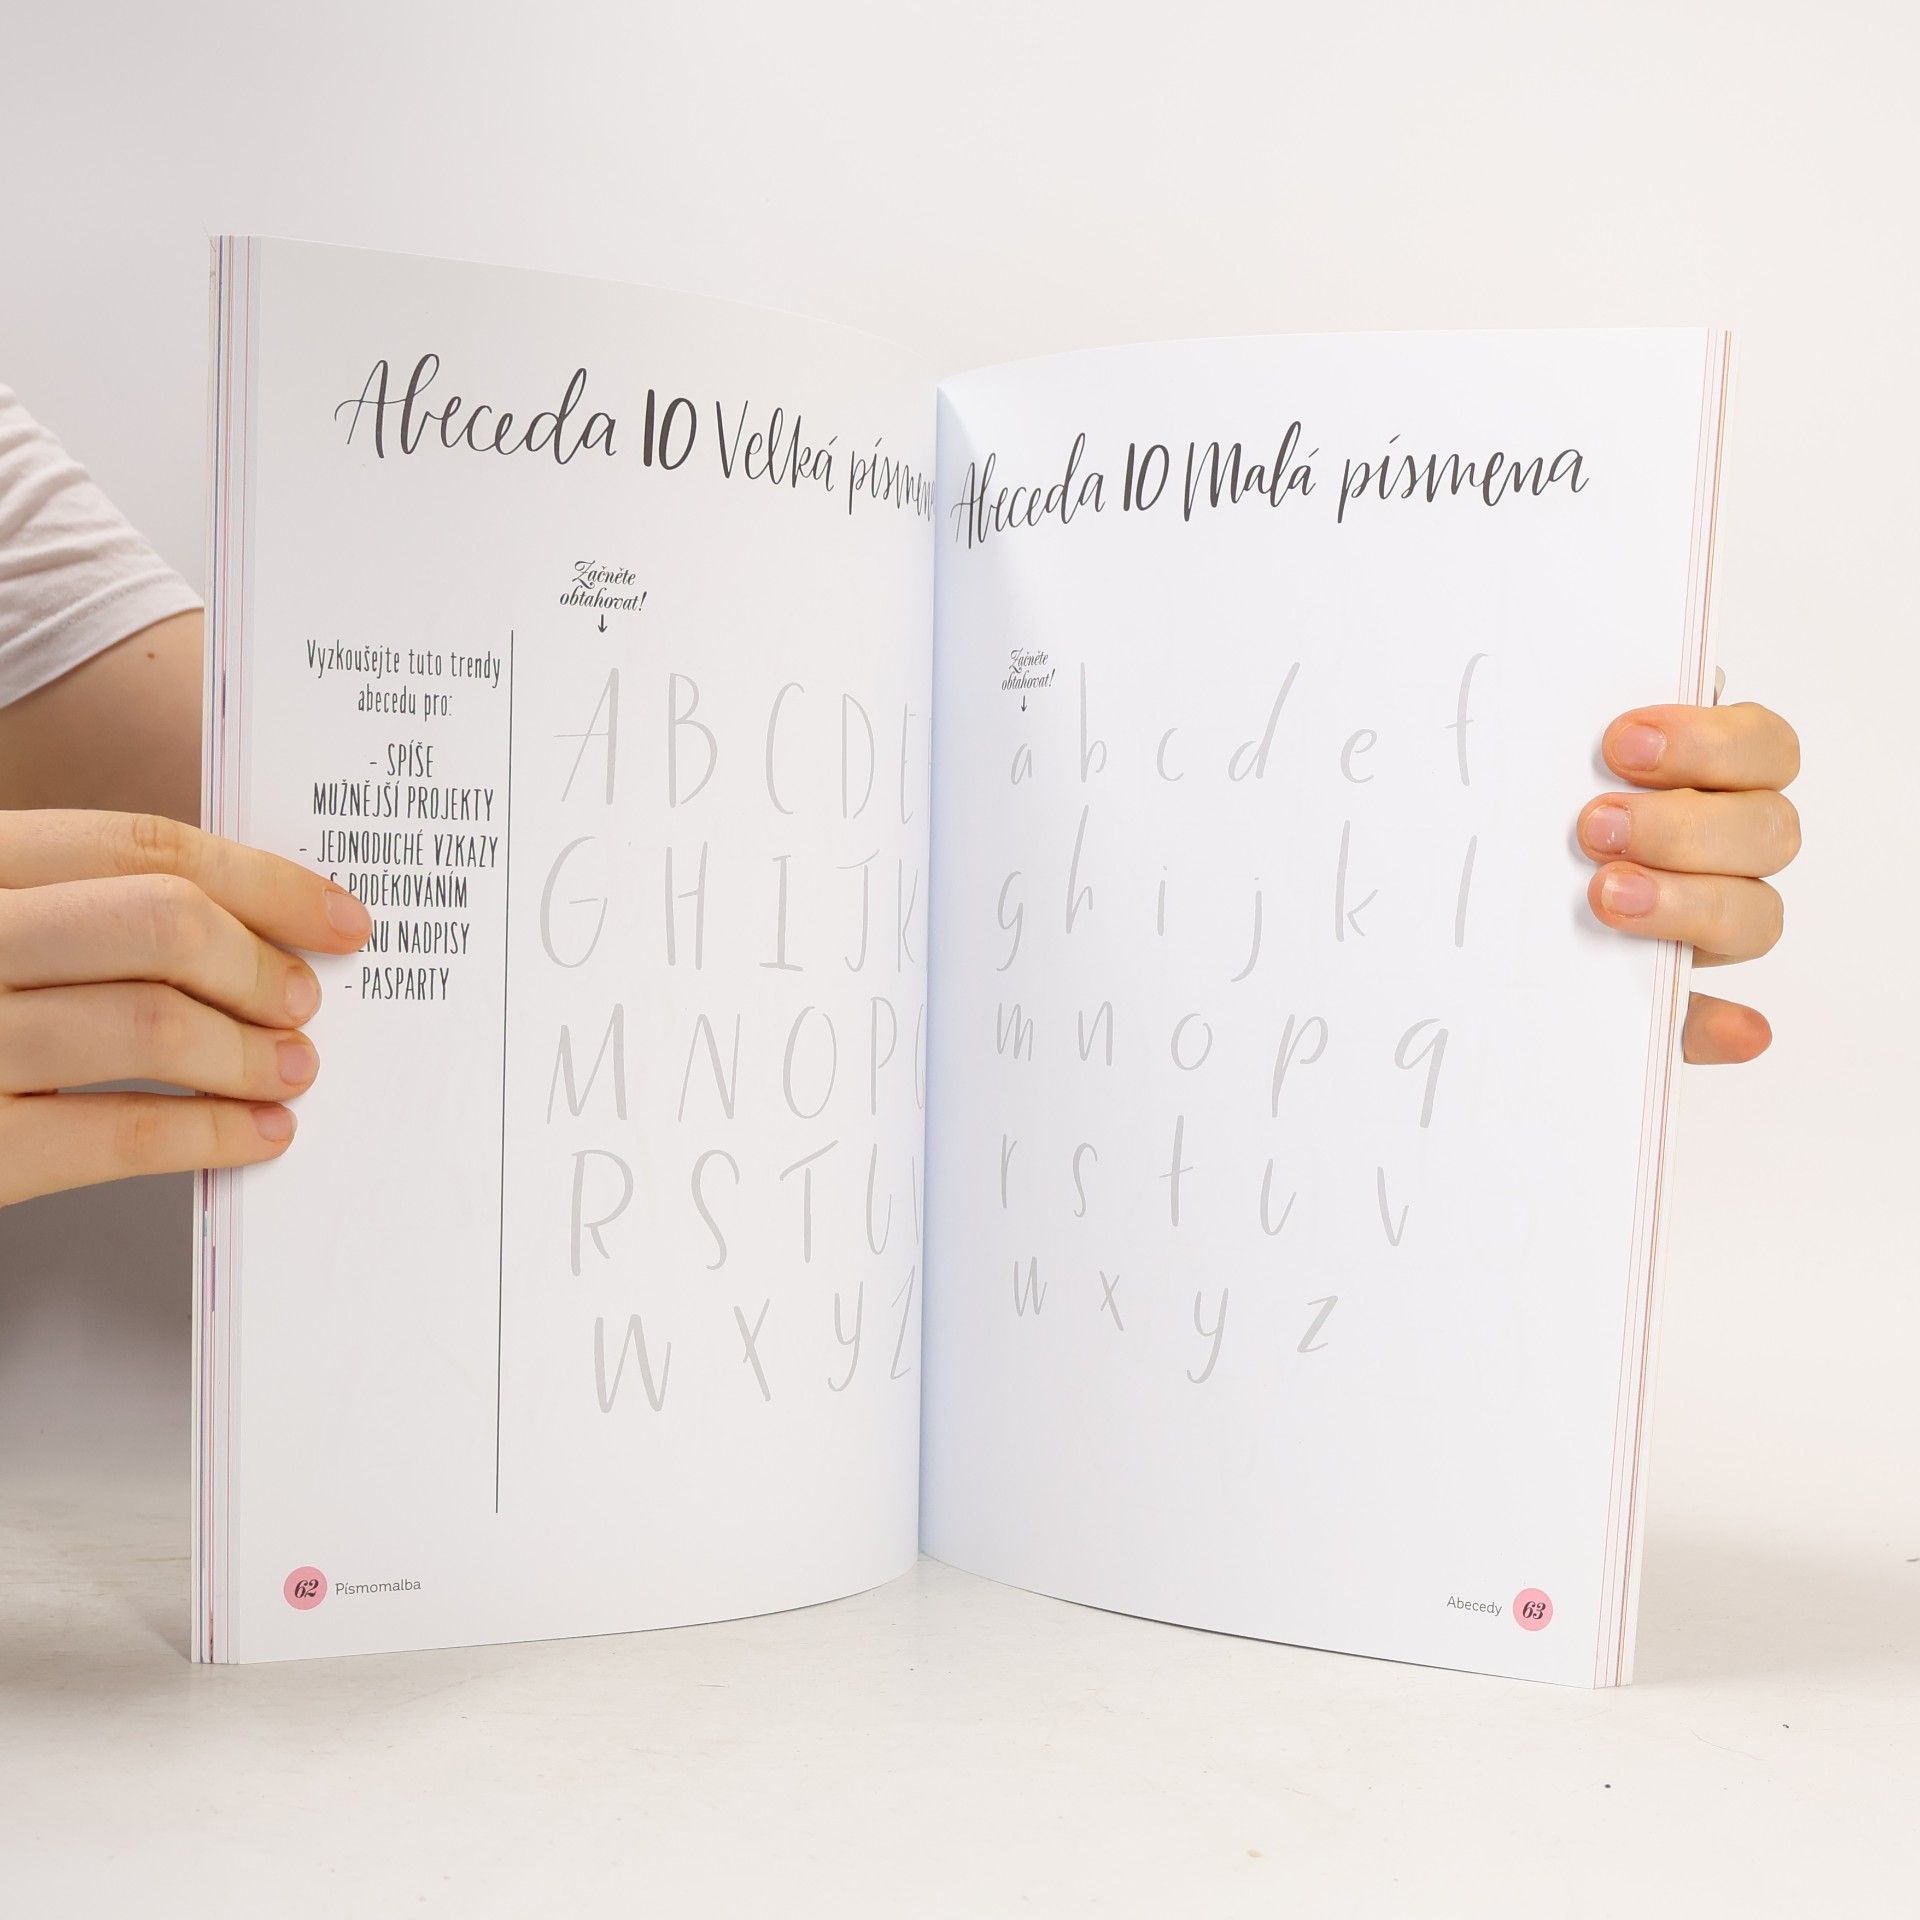 Abeceda 10 Velká písmena
Začněte
obtahovat!
Vyzkoušejte tuto trendy
abecedu pro:
- SPÍŠE
MUŽNĚJŠÍ PROJEKTY
- JEDNODUCHÉ VZKAZY
S PODĚKOVÁNÍM
NADPISY
- PASPARTY
A B C D E
G H I J K
M N O P
R S T U
W X Y Z
62 Písmomalba
Abeceda 10 Malá písmena
Začněte
obtahovat!
a b c d e f
g h i j k l
m n o p q
r s t u v
w x y z
Abecedy 63